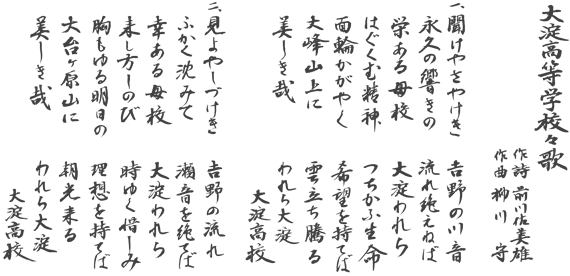 大淀高等学校々歌
作詩 前川佐美雄
作曲 柳川 守
一、聞けやさやけき 吉野の川音
永久の響きの 流れ絶えねば
栄ある母校 大淀われら
はぐくむ精神 つちかふ生命
面輪かがやく 希望を持てば
大峰山上に 雲立ち騰る
美しき哉 われら大淀
大淀高校
二、見よやしづけき 吉野の流れ
ふかく沈みて 瀬音を絶てば
幸ある母校 大淀われら
来し方しのび 時ゆく惜しみ
胸もゆる明日の 理想を持てば
大台ヶ原山に 朝光来る
美しき哉 われら大淀
大淀高校